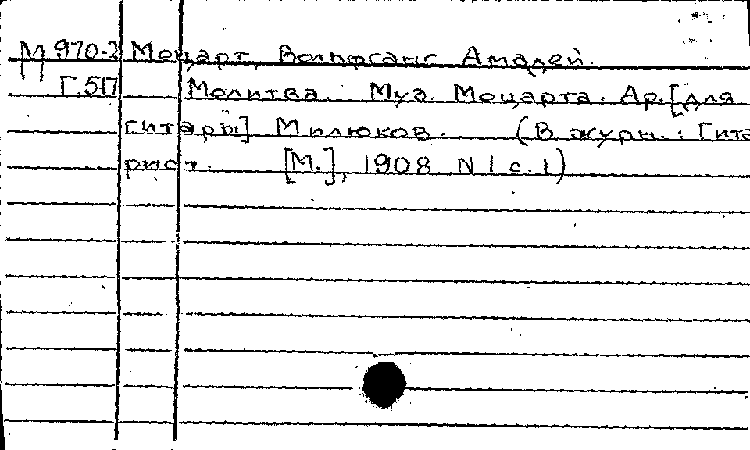 М 970-2 Моцарт, Вольфганг Амадей.
П Г.5П Молитва. Муз. Моцарта. Ар. [для
гитары] Милюков. (В журн.: Гита
рист. [М.], 1908 N 1 с. 1)